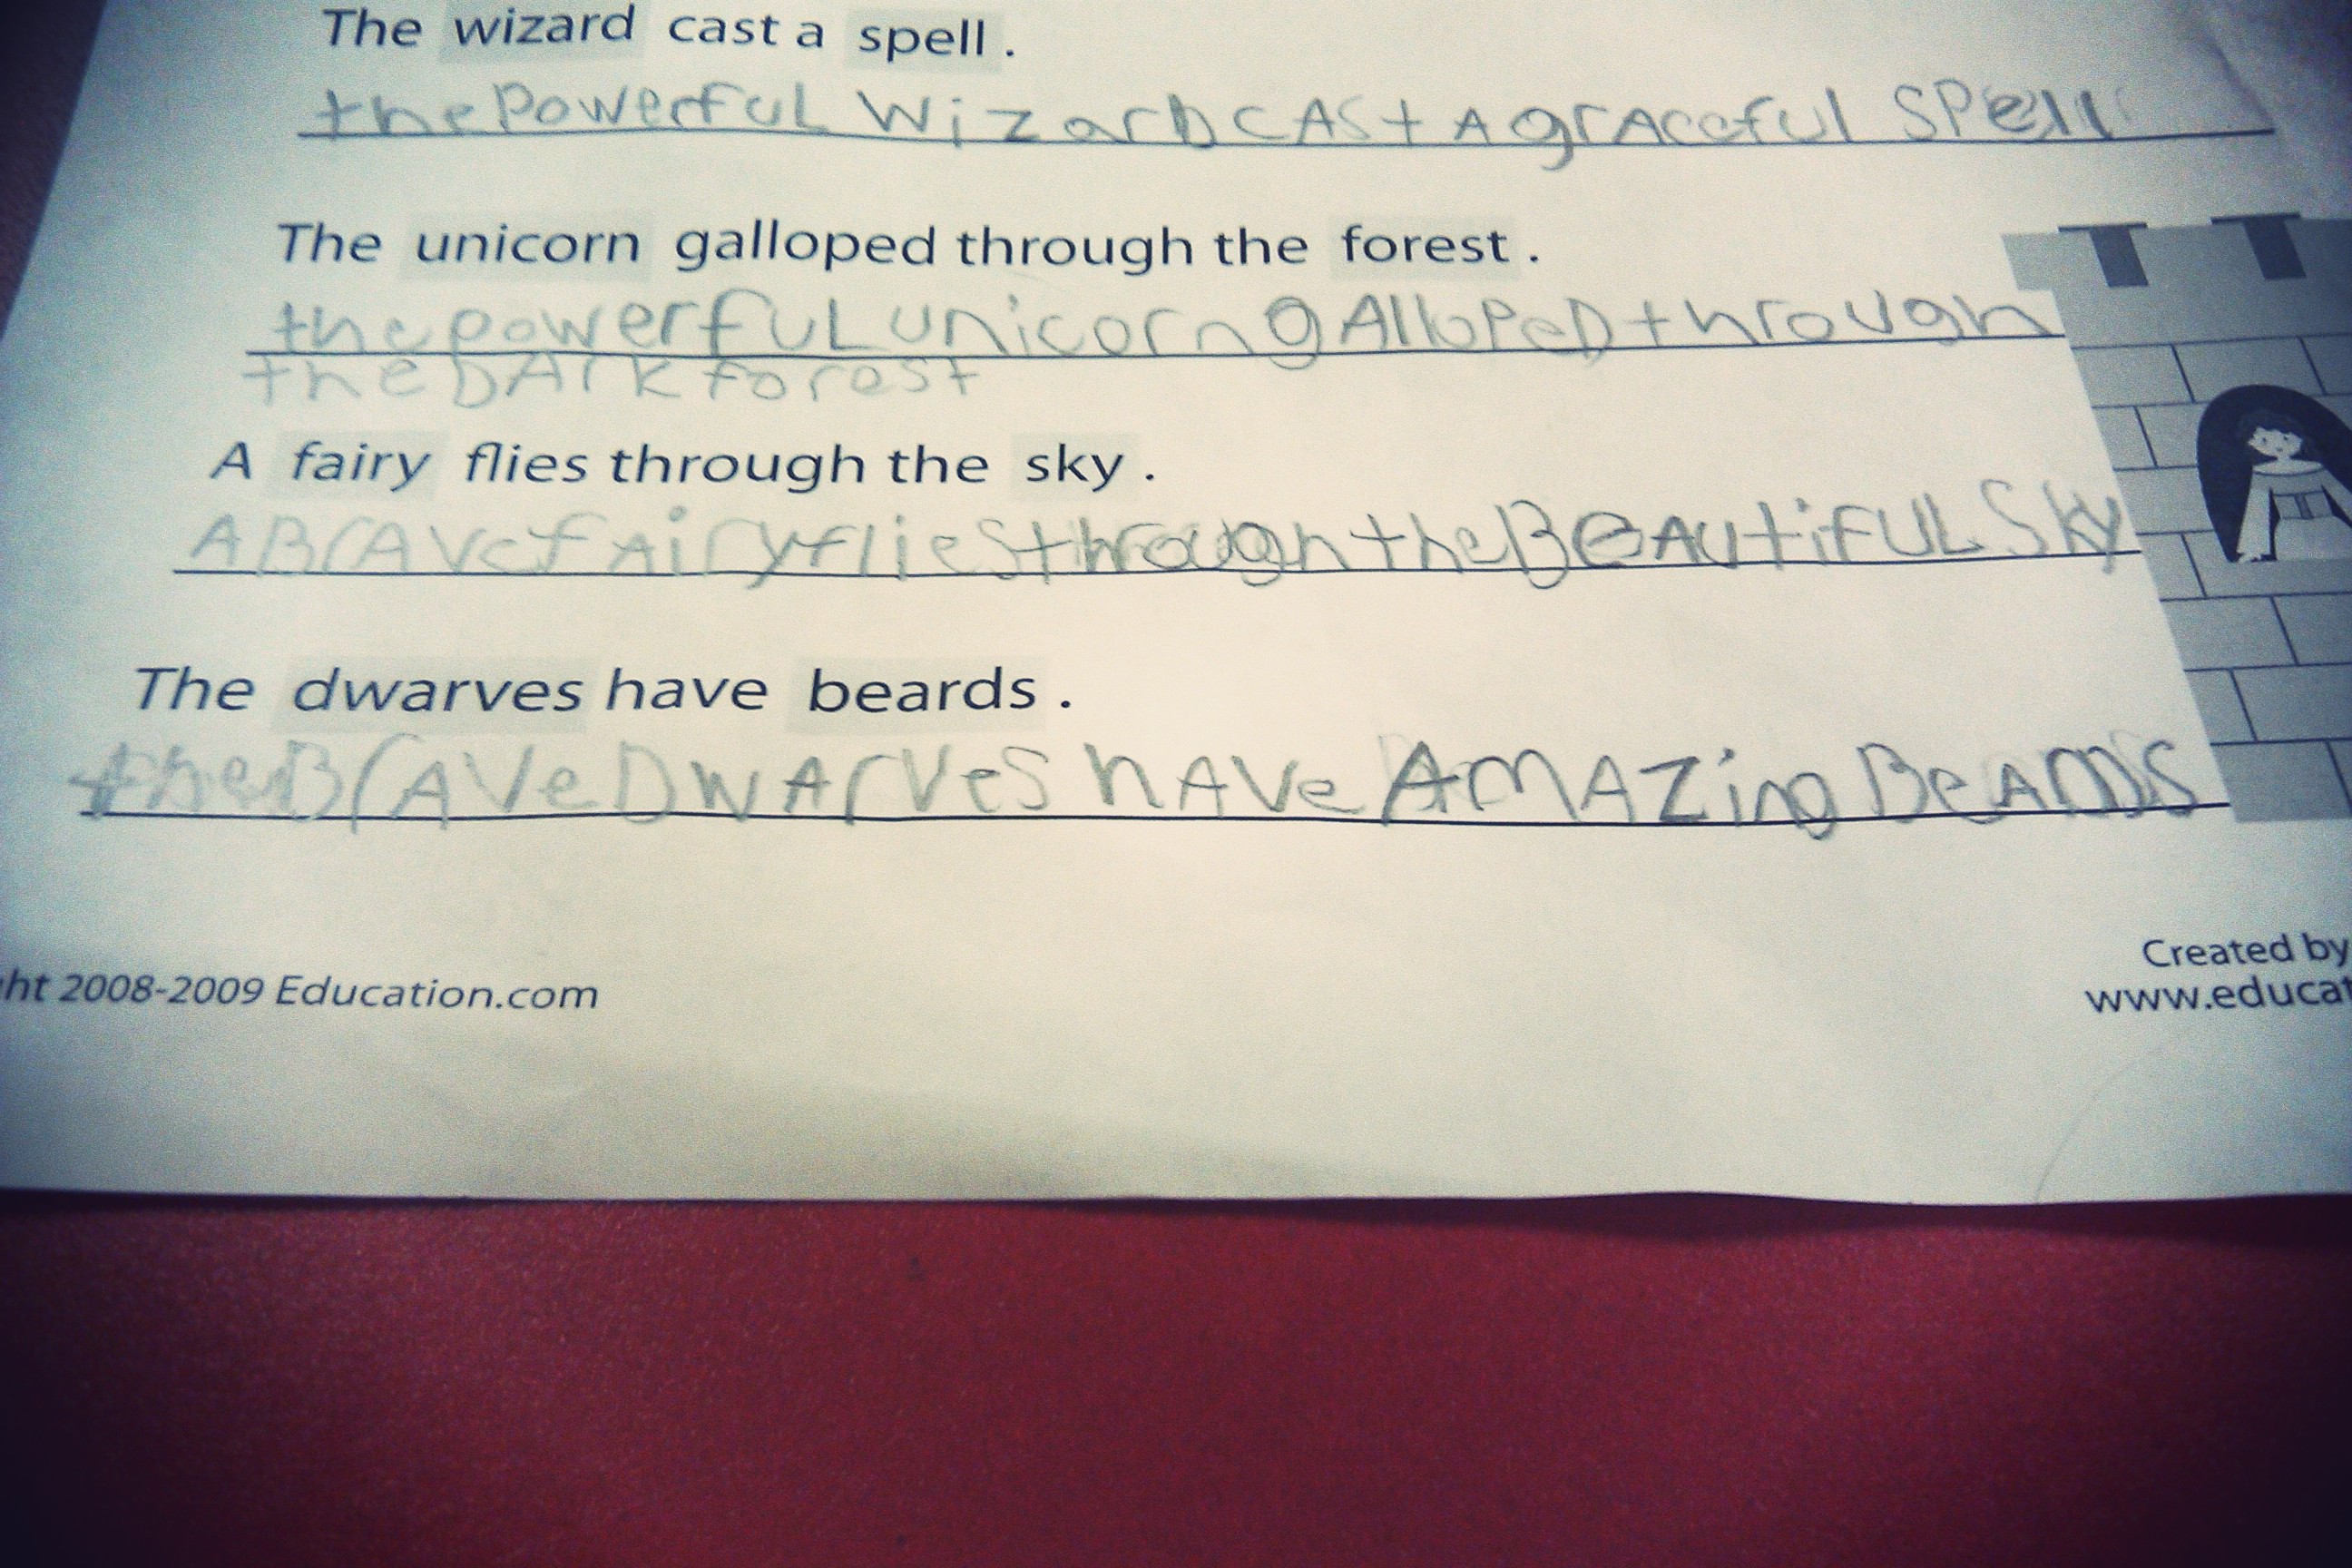 The wizard cast a spell .
the Powerful Wizard CASt A grAceful SPell
The unicorn galloped through the forest .
the powerfuL unicorn gAlloPeD through
the DArk forest
A fairy flies through the sky .
A BrAve fAiry flieS through the BeAutiFUL Sky
The dwarves have beards .
the BrAVe DwArVeS hAVe AMAZing BeArDS
ht 2008-2009 Education.com
Created by
www.educat